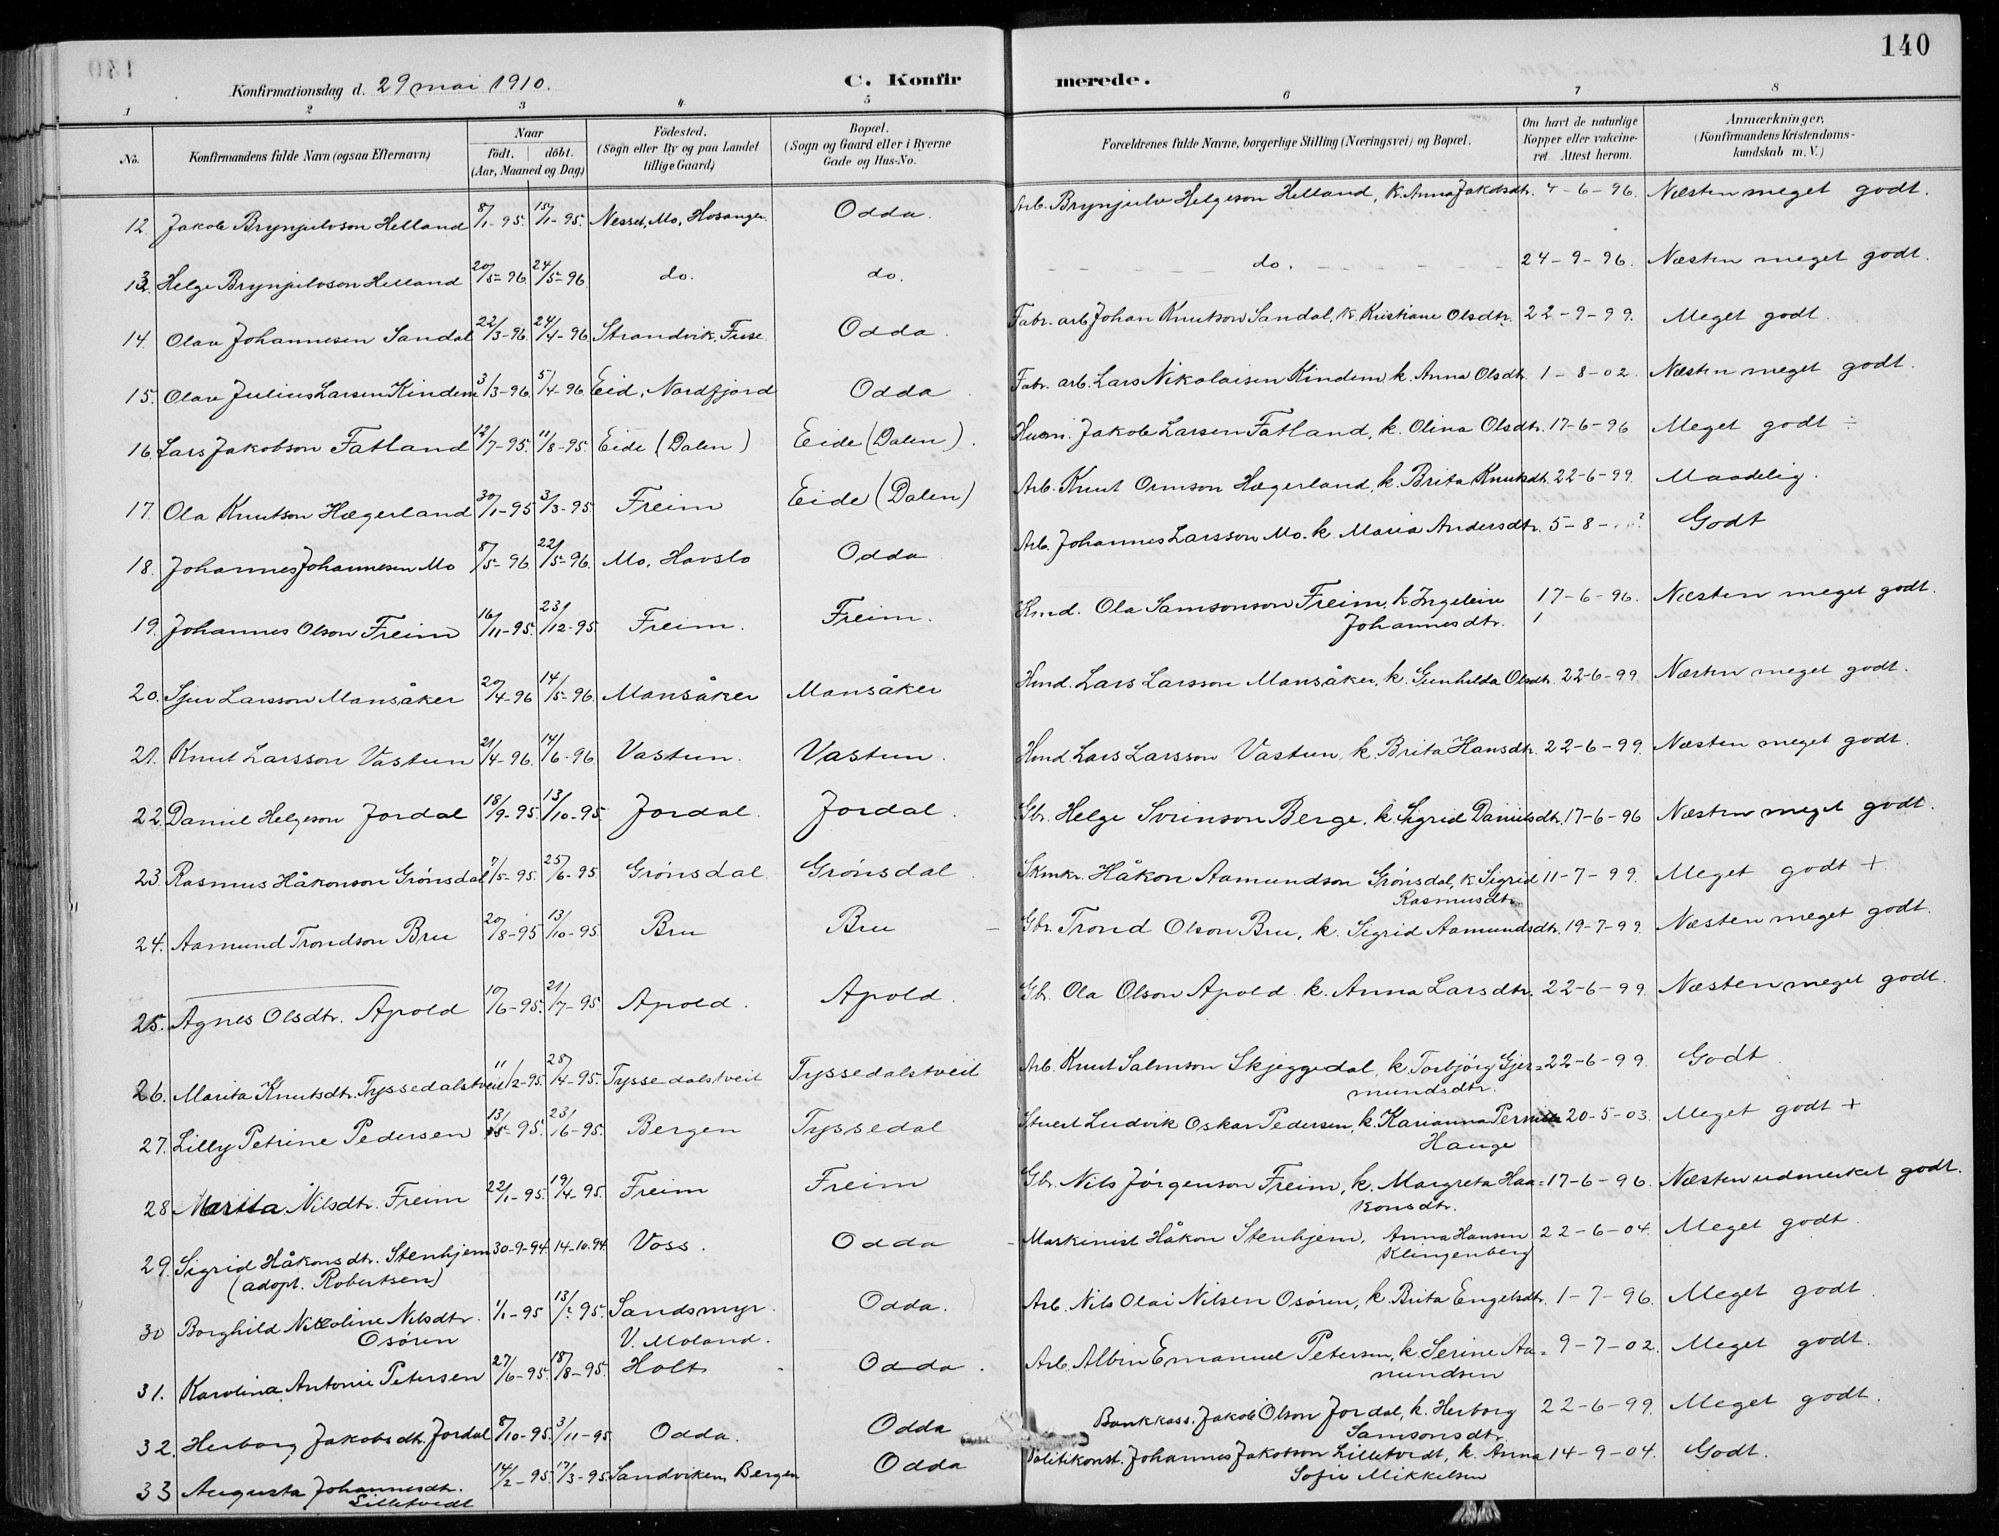 140
Konfirmationsdag d. 29 mai 1910.
C. Konfirmerede.
1 2 3 4 5 6 7 8
No. | Konfirmandens fulde Navn (ogsaa Efternavn) | Naar født. døbt. (Aar, Maaned og Dag) | Fødested. (Sogn eller By og paa Landet tillige Gaard) | Bopæl. (Sogn og Gaard eller i Byerne Gade og Hus-No. | Forældrenes fulde Navne, borgerlige Stilling (Næringsvei) og Bopæl. | Om havt de naturlige Kopper eller vakcineret. Attest herom. | Anmærkninger. (Konfirmandens Kristendomskundskab m. V.)
12. Jakob Brynjulvson Helland 8/1-95. 15/1-95. Nesset, Mo, Hosanger. Odda. Arb. Brynjulv Helgeson Helland, k. Anna Jakobsdtr. 4-6-96. Næsten meget godt.
13. Helge Brynjulvson Helland 20/5-96. 24/5-96. do. do. do. 24-9-96. Næsten meget godt.
14. Olav Johannesen Sandal 22/3-96. 24/4-96 Strandvik, Fuse Odda. Fabr. arb. Johan Knutson Sandal, k. Kristiane Olsdtr. 22-9-99. Meget godt.
15. Olav Julius Larsen Kindem 3/3-96. 5/4-96 Eid, Nordfjord Odda Fabr. arb. Lars Nikolaisen Kindem, k. Anna Olsdtr. 1-8-02. Næsten meget godt.
16. Lars Jakobson Fatland 12/7-95. 11/8-95. Eide (Dalen) Eide (Dalen). Husm. Jakob Larsen Fatland, k. Olina Olsdtr. 17-6-96 Meget godt ÷
17. Ola Knutson Hægerland 30/1-95 3/3-95. Freim Eide (Dalen) Arb. Knut Ormson Hægerland, k. Brita Knutsdtr. 22-6-99. Maadelig.
18. Johannes Johannesen Mo 8/5-96. 22/5-96. Mo, Havslo Odda Arb. Johannes Larsson Mo. k Maria Andersdtr. 5-8-..? Godt
19. Johannes Olson Freim 16/11-95. 23/12-95. Freim. Freim. Hmd. Ola Samsonson Freim, k. Ingeleiv Johannesdtr. 17-6-96. Næsten meget godt.
20. Sjur Larsson Mansåker 20/4-96 14/5-96. Mansåker Mansåker Hmd. Lars Larsson Mansåker, k. Gunhilda Olsdtr. 22-6-99. Næsten meget godt.
21. Knut Larsson Vastun 21/4-96. 14/6-96 Vastun. Vastun. Hmd. Lars Larsson Vastun, k. Brita Hansdtr. 22-6-99. Næsten meget godt.
22. Daniel Helgeson Jordal 18/9-95. 13/10-95 Jordal. Jordal. Gbr. Helge Sveinson Berge, k. Sigrid Danielsdtr. 17-6-96 Næsten meget godt.
23. Rasmus Håkonson Grønsdal 7/5-95. 25/6-95 Grønsdal. Grønsdal. Skmkr. Håkon Aamundson Grønsdal, k. Sigrid Rasmusdtr. 11-7-99. Meget godt +
24. Aamund Trondson Bru 20/8-95 13/10-95 Bru Bru Gbr. Trond Olson Bru, k. Sigrid Aamundsdtr. 19-7-99. Næsten meget godt.
25. Agnes Olsdtr. Apold 10/6-95. 21/7-95 Apold. Apold. Gbr. Ola Olson Apold. k. Anna Larsdtr. 22-6-99. Næsten meget godt.
26. Marita Knutsdtr. Tyssedalstveit 11/2-95. 28/4-95. Tyssedalstveit Tyssedalstveit Arb. Knut Salmson Skjeggedal, k. Torbjørg Gjermundsdtr. 22-6-99. Godt
27. Lilly Petrine Pedersen 13/5-95. 23/6-95. Bergen Tyssedal Stuert Ludvik Oskar Pedersen, k. Karianna Hauge 20-5-03. Meget godt +
28 Marita Nilsdtr. Freim 22/1-95. 19/4-95. Freim Freim Gbr. Nils Jørgenson Freim, k. Margreta Haakonsdtr. 17-6-96. Næsten udmerket godt.
29. Sigrid Håkonsdtr. Stenhjem (adopt. Robertsen) 30-9-94. 14-10.94 Voss. Odda Maskinist Håkon Stenhjem, Anna Hansen Klingenberg 22-6-04. Meget godt.
30 Borghild Nikoline Nilsdtr. Osøren 1/1-95 13/.-95. Sandsmyr. V. Moland. Odda. Arb. Nils Olai Nilsen Osøren, k. Brita Engelsdtr. 1-7-96. Meget godt.
31. Karolina Antonie Petersen 27/6-95. 18/8-95. Holt Odda. Arb. Albin Emanuel Petersen, k. Serine Aamundsen 9-7-02. Meget godt.
32. Herborg Jakobsdtr. Jordal 8/10-95. 3/11-95. Odda. Odda Bankkass. Jakob Olson Jordal, k. Herborg Samsonsdtr. 22-6-99. Meget godt.
33 Augusta Johannesdtr. Lilletvedt 14/2-95. 17/3-95. Sandviken, Bergen Odda Politikonst. Johannes Jakobson Lilletvedt, k. Anna Sofie Mikkelsen 14-9-04. Godt.